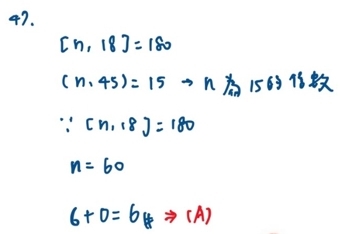 47.
[n, 18] = 180
(n, 45) = 15 → n 為 15 的倍數
∵ [n, 18] = 180
n = 60
6 + 0 = 6 # ⇒ (A)